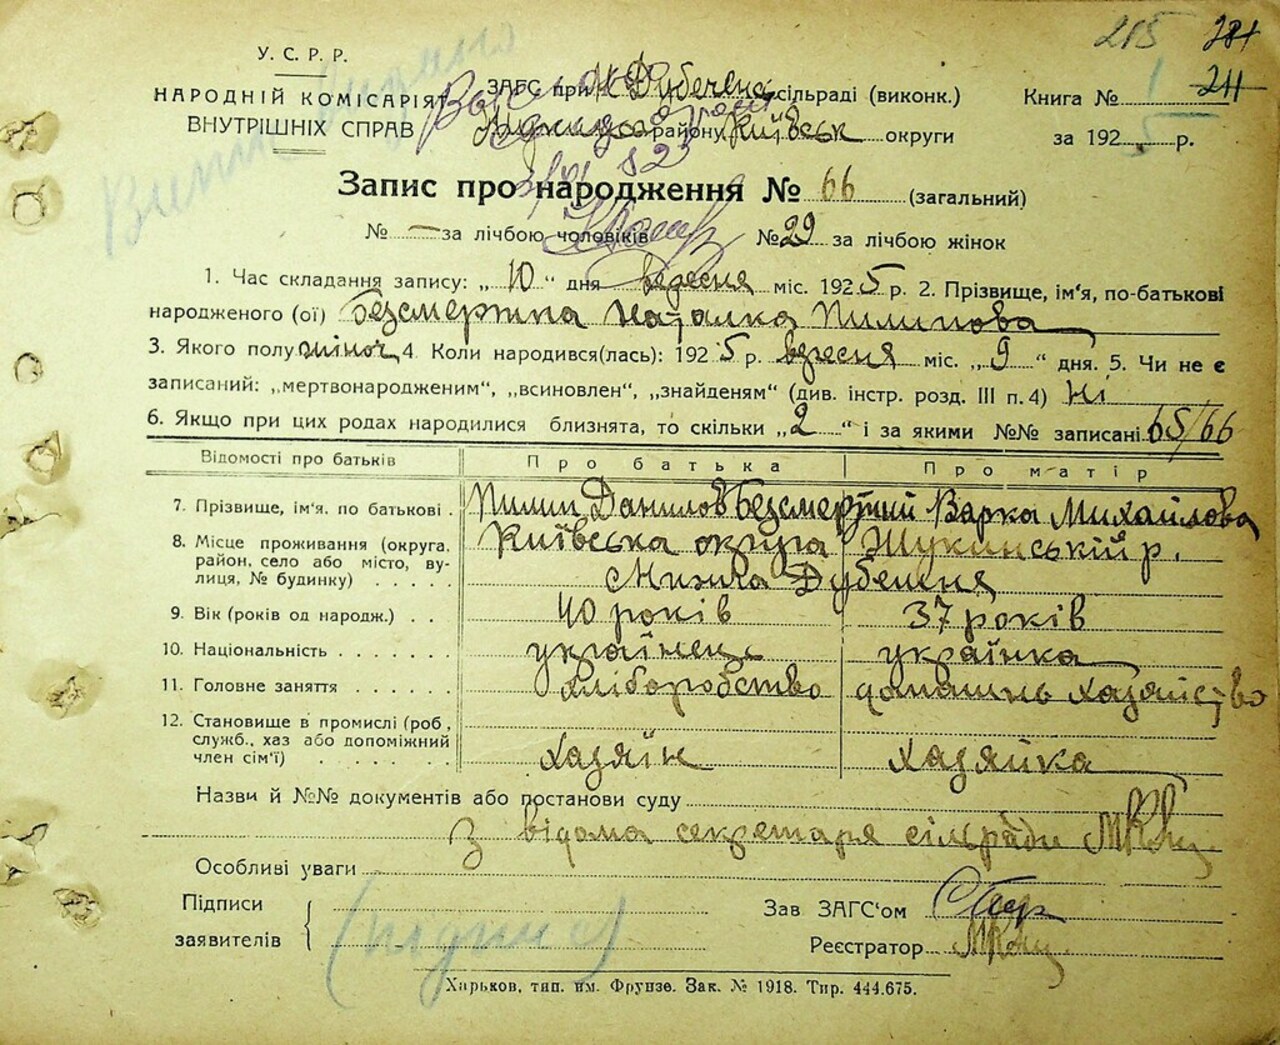 215 281
У. С. Р. Р.
НАРОДНІЙ КОМІСАРІЯТ
ВНУТРІШНІХ СПРАВ
ЗАГС при Н Дубеченс. сільраді (виконк.)
району Київськ округи
Книга № 1 211
за 1925 р.
Запис про народження № 66 (загальний)
№ — за лічбою чоловіків № 29 за лічбою жінок
1. Час складання запису: „10“ дня вересня міс. 1925 р. 2. Прізвище, ім‘я, по-батькові
народженого (ої) Безсмертна Наталка Пилипова
3. Якого полу жіноч 4. Коли народився(лась): 1925 р. вересня міс. „9“ дня. 5. Чи не є
записаний: „мертвонародженим“, „всиновлен“, „знайденям“ (див. інстр. розд. III п. 4) Ні
6. Якщо при цих родах народилися близнята, то скільки „2“ і за якими №№ записані 65/66
Відомості про батьків Про батька Про матір
7. Прізвище, ім‘я. по батькові . Пилип Данилов Безсмертний Варка Михайлова
8. Місце проживання (округа, Київська округа Жукинській р.
район, село або місто, ву-
лиця, № будинку) . . . . . Нижча Дубечня
9. Вік (років од народж.) . . 40 років 37 років
10. Національність . . . . . . . українець українка
11. Головне заняття . . . . . . хліборобство домашнь хазяйство
12. Становище в промислі (роб.,
служб., хаз або допоміжний
член сім‘ї) . . . . . . . хазяїн хазяйка
Назви й №№ документів або постанови суду
З відома секретаря сільради
Особливі уваги
Підписи
заявителів (підписи)
Зав ЗАГС‘ом
Реєстратор
Харьков, тип. им. Фрунзе. Зак. № 1918. Тир. 444.675.